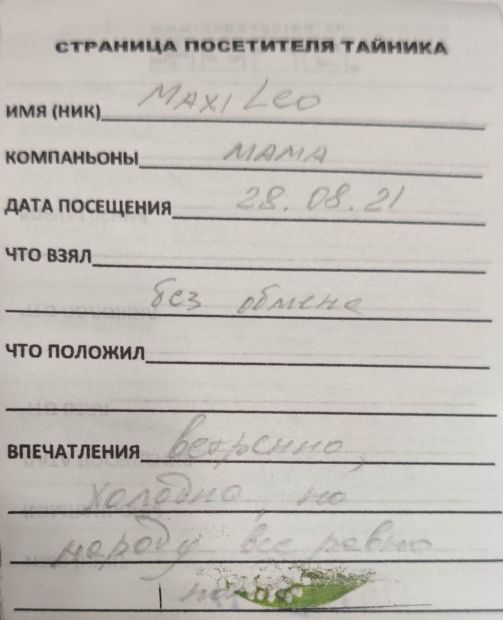 СТРАНИЦА ПОСЕТИТЕЛЯ ТАЙНИКА
ИМЯ (НИК) MAXI LEO
КОМПАНЬОНЫ МАМА
ДАТА ПОСЕЩЕНИЯ 28.08.21
ЧТО ВЗЯЛ
без обмена
ЧТО ПОЛОЖИЛ
ВПЕЧАТЛЕНИЯ ветренно,
холодно, но
народу все равно